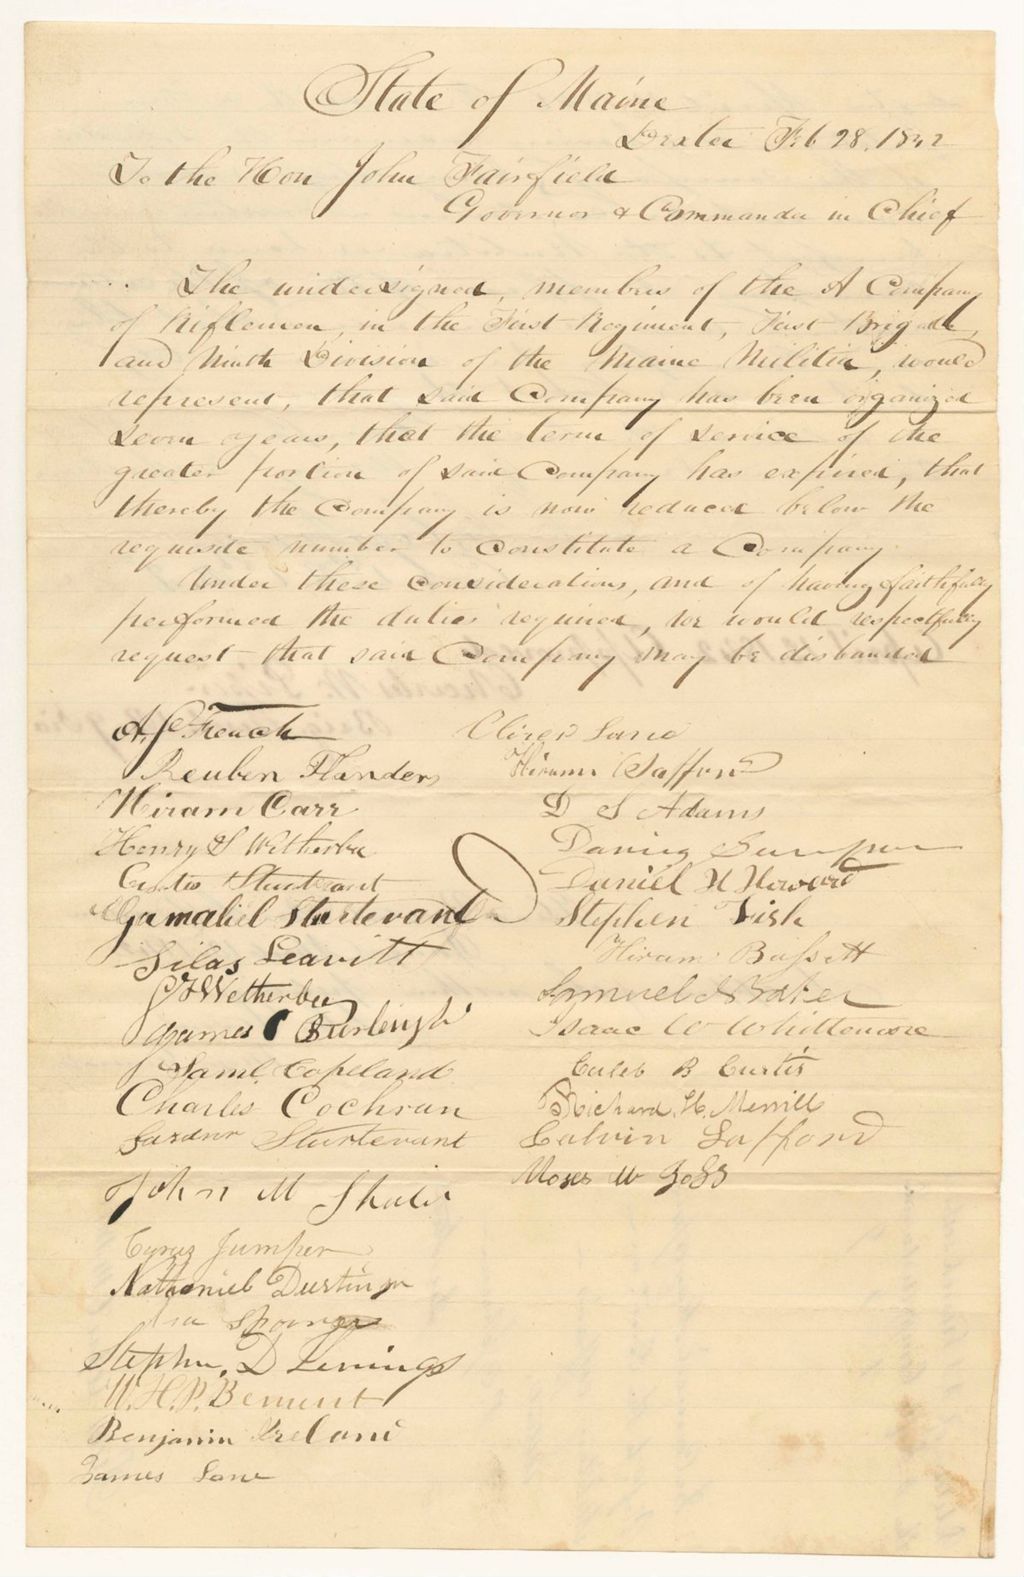 State of Maine
Dexter Feb 28, 1842
To the Hon John Fairfield
Governor & Commander in Chief
The undersigned, members of the A Company
of Riflemen, in the First Regiment, First Brigade,
and Ninth Division of the Maine Militia, would
represent, that said Company has been organized
seven years, that the term of service of the
greater portion of said Company has expired, that
thereby the Company is now reduced below the
requisite number to Constitute a Company
Under these Considerations, and of having faithfully
performed the duties required, we would respectfully
request that said Company may be disbanded
French
Oliver Lane
Reuben Flanders
Hiram Safford
Hiram Carr
D S Adams
Henry S Wetherbee
Jumper
Sturtevant
Daniel H Howard
Gamaliel Sturtevant
Stephen Fish
Silas Leavitt
Hiram Bassett
Wetherbee
Samuel Baker
James Burleigh
Isaac W Whittemore
Saml. Copeland
Caleb B Curtis
Charles Cochran
Richard H. Merrill
Sturtevant
Calvin Safford
John M
Moses W Goss
Cyrus Jumper
Nathaniel Dustin jr
Stephen D Jennings
W.H.P. Bement
Benjamin Ireland
James Lane